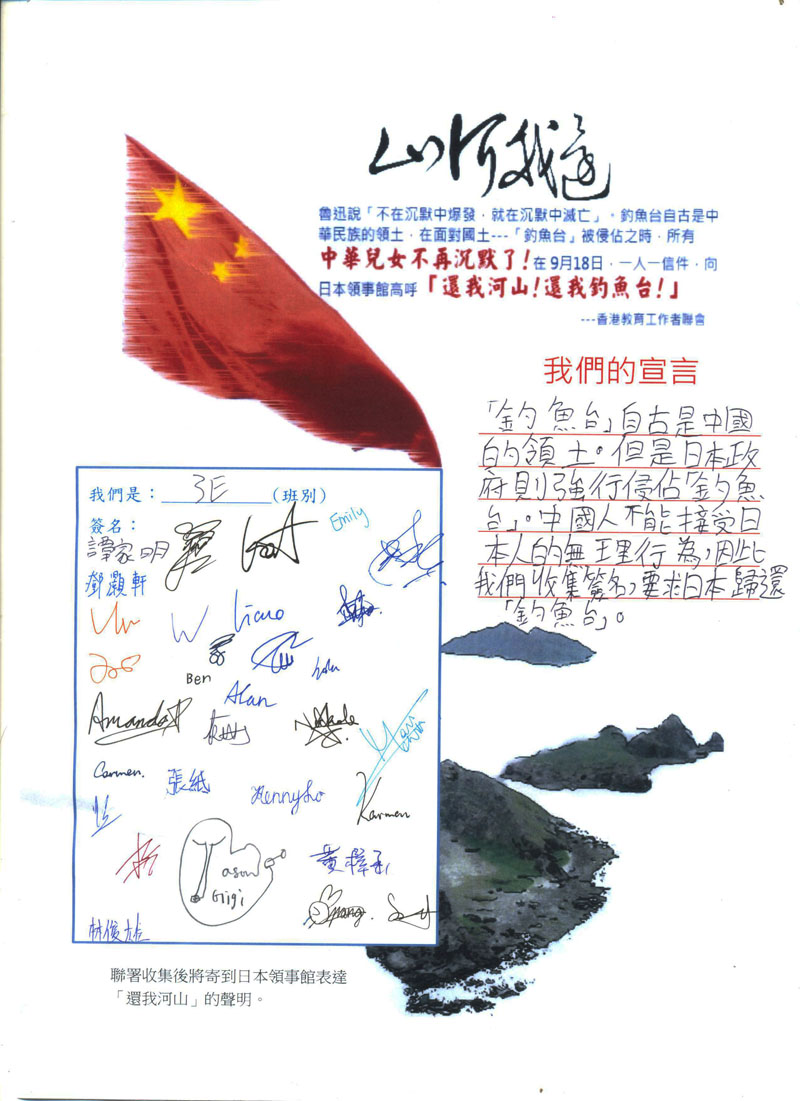 山河我還
魯迅說「不在沉默中爆發，就在沉默中滅亡」。釣魚台自古是中
華民族的領土，在面對國土---「釣魚台」被侵佔之時，所有
中華兒女不再沉默了！在9月18日，一人一信件，向
日本領事館高呼「還我河山！還我釣魚台！」
---香港教育工作者聯會
我們的宣言
「釣魚台」自古是中國
的領土。但是日本政
府則強行侵佔「釣魚
台」。中國人不能接受日
本人的無理行為，因此
我們收集簽名，要求日本歸還
「釣魚台」。
我們是：3E（班別）
簽名：
Emily
譚家明
鄧灝軒
W
Ben
Alan
Amanda
Carmen.
張紙
Kenny Lo
Karmen
Jason
Gigi
林俊雄
聯署收集後將寄到日本領事館表達
「還我河山」的聲明。